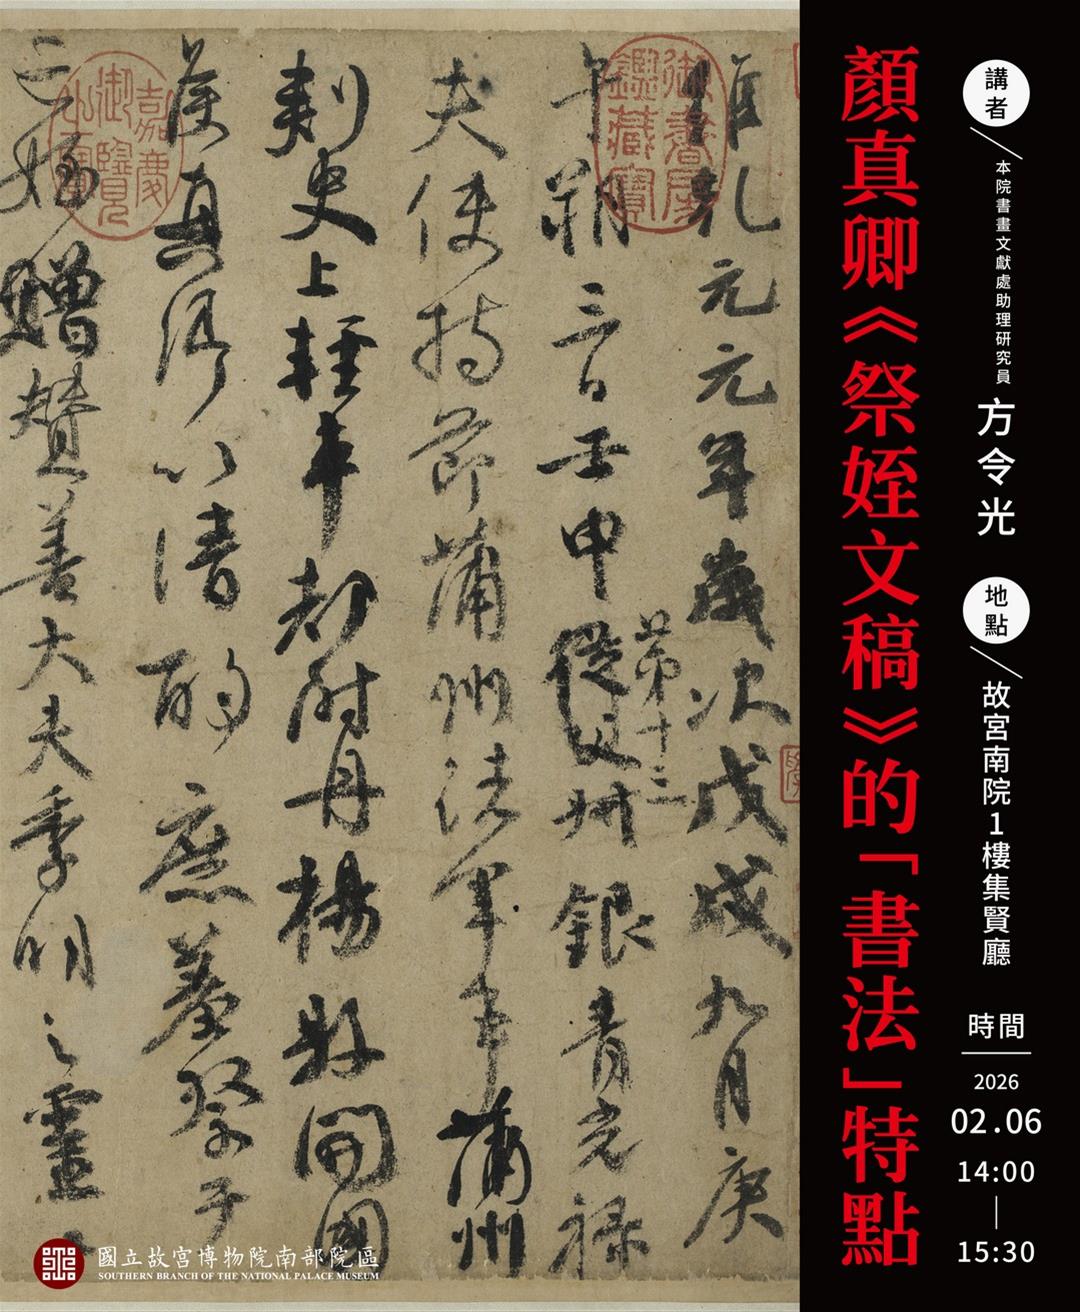 講者
本院書畫文獻處助理研究員
方令光
地點
故宮南院1樓集賢廳
時間
2026
02.06
14:00
15:30
顏真卿《祭姪文稿》的「書法」特點
維乾元元年歲次戊戌九月庚
午朔三日壬申從父叔銀青光祿
第十三
夫使持節蒲州諸軍事蒲州
刺史上輕車都尉丹楊縣開國
侯真卿以清酌庶羞祭于
亡姪贈贊善大夫季明之靈
御書房鑑藏寶
嘉慶御覽之寶
國立故宮博物院南部院區
SOUTHERN BRANCH OF THE NATIONAL PALACE MUSEUM